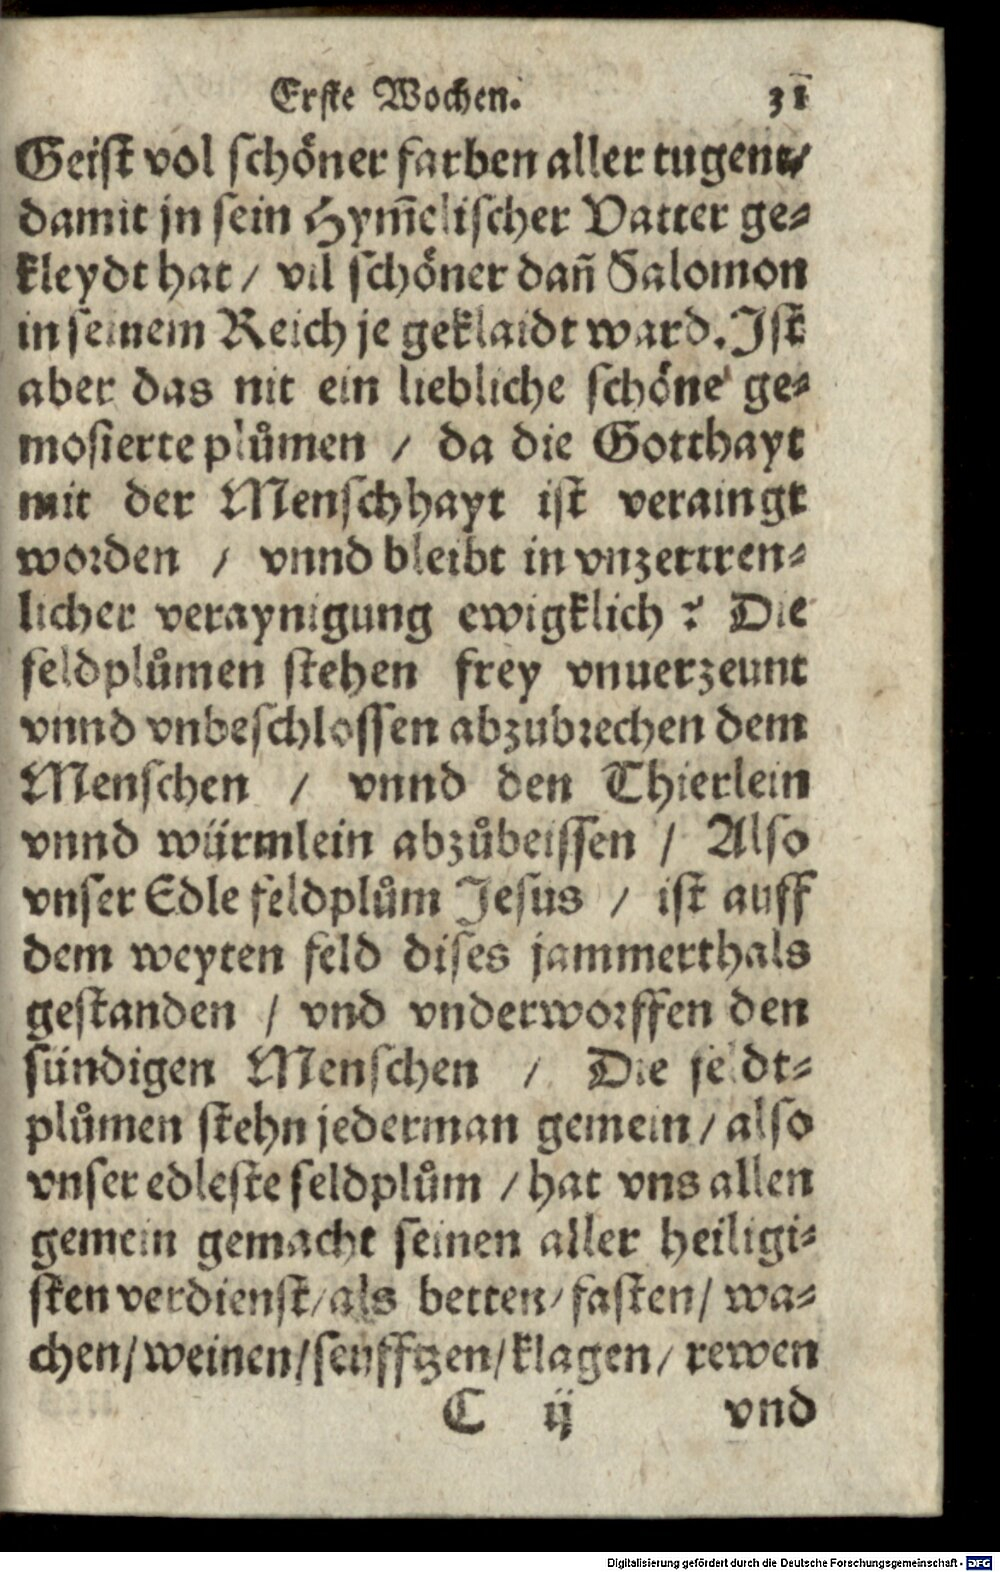 Erste Wochen. 31
Geist vol schöner farben aller tugent/
damit jn sein Hym̃elischer Vatter ge⸗
kleydt hat / vil schöner dañ Salomon
in seinem Reich je geklaidt ward. Ist
aber das nit ein liebliche schöne ge⸗
mosierte plůmen / da die Gotthayt
mit der Menschhayt ist veraingt
worden / vnnd bleibt in vnzertren⸗
licher veraynigung ewigklich? Die
feldplůmen stehen frey vnuerzeunt
vnnd vnbeschlossen abzubrechen dem
Menschen / vnnd den Thierlein
vnnd würmlein abzůbeissen / Also
vnser Edle feldplům Jesus / ist auff
dem weyten feld dises jammerthals
gestanden / vnd vnderworffen den
sündigen Menschen / Die feldt⸗
plůmen stehn jederman gemein / also
vnser edleste feldplům / hat vns allen
gemein gemacht seinen aller heiligi⸗
sten verdienst/als betten/fasten/ wa⸗
chen/weinen/seufftzen/klagen/ rewen
C ij vnd
Digitalisierung gefördert durch die Deutsche Forschungsgemeinschaft - DFG